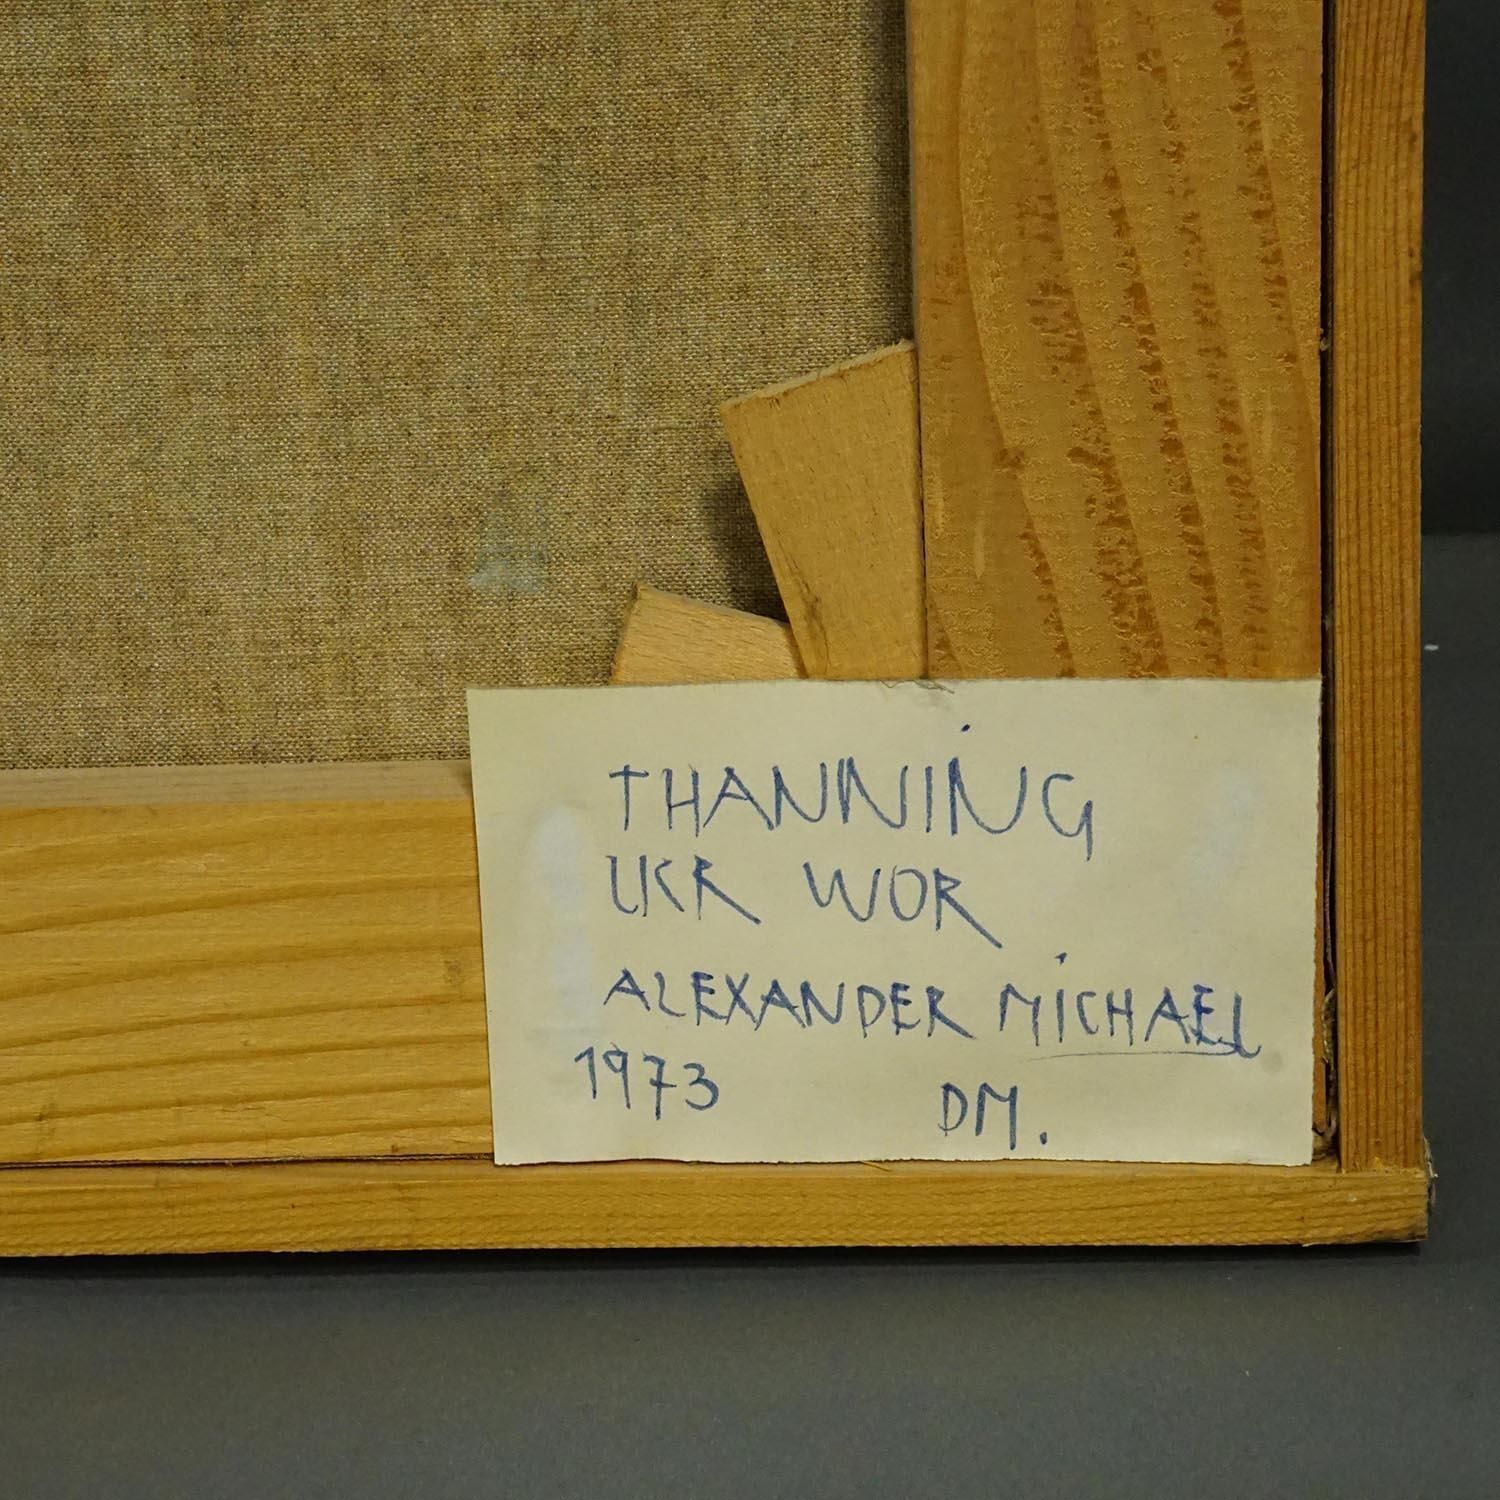 THANNING
UKR WOR
ALEXANDER MICHAEL
1973 DM.